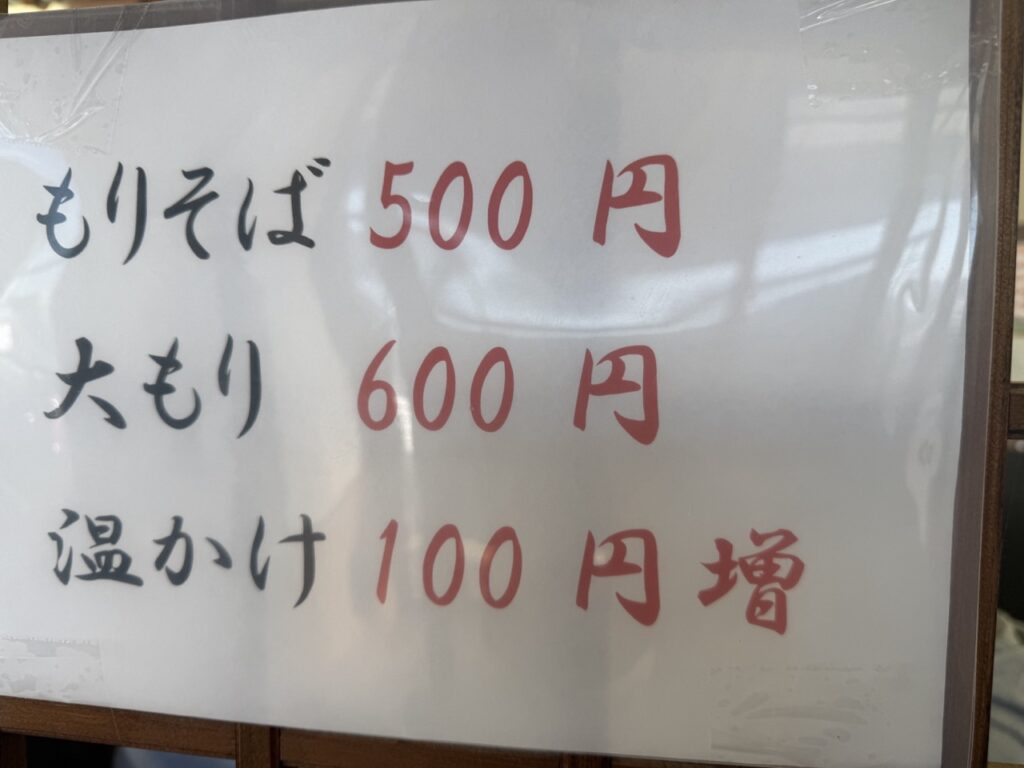 もりそば 500 円
大もり 600 円
温かけ 100 円増